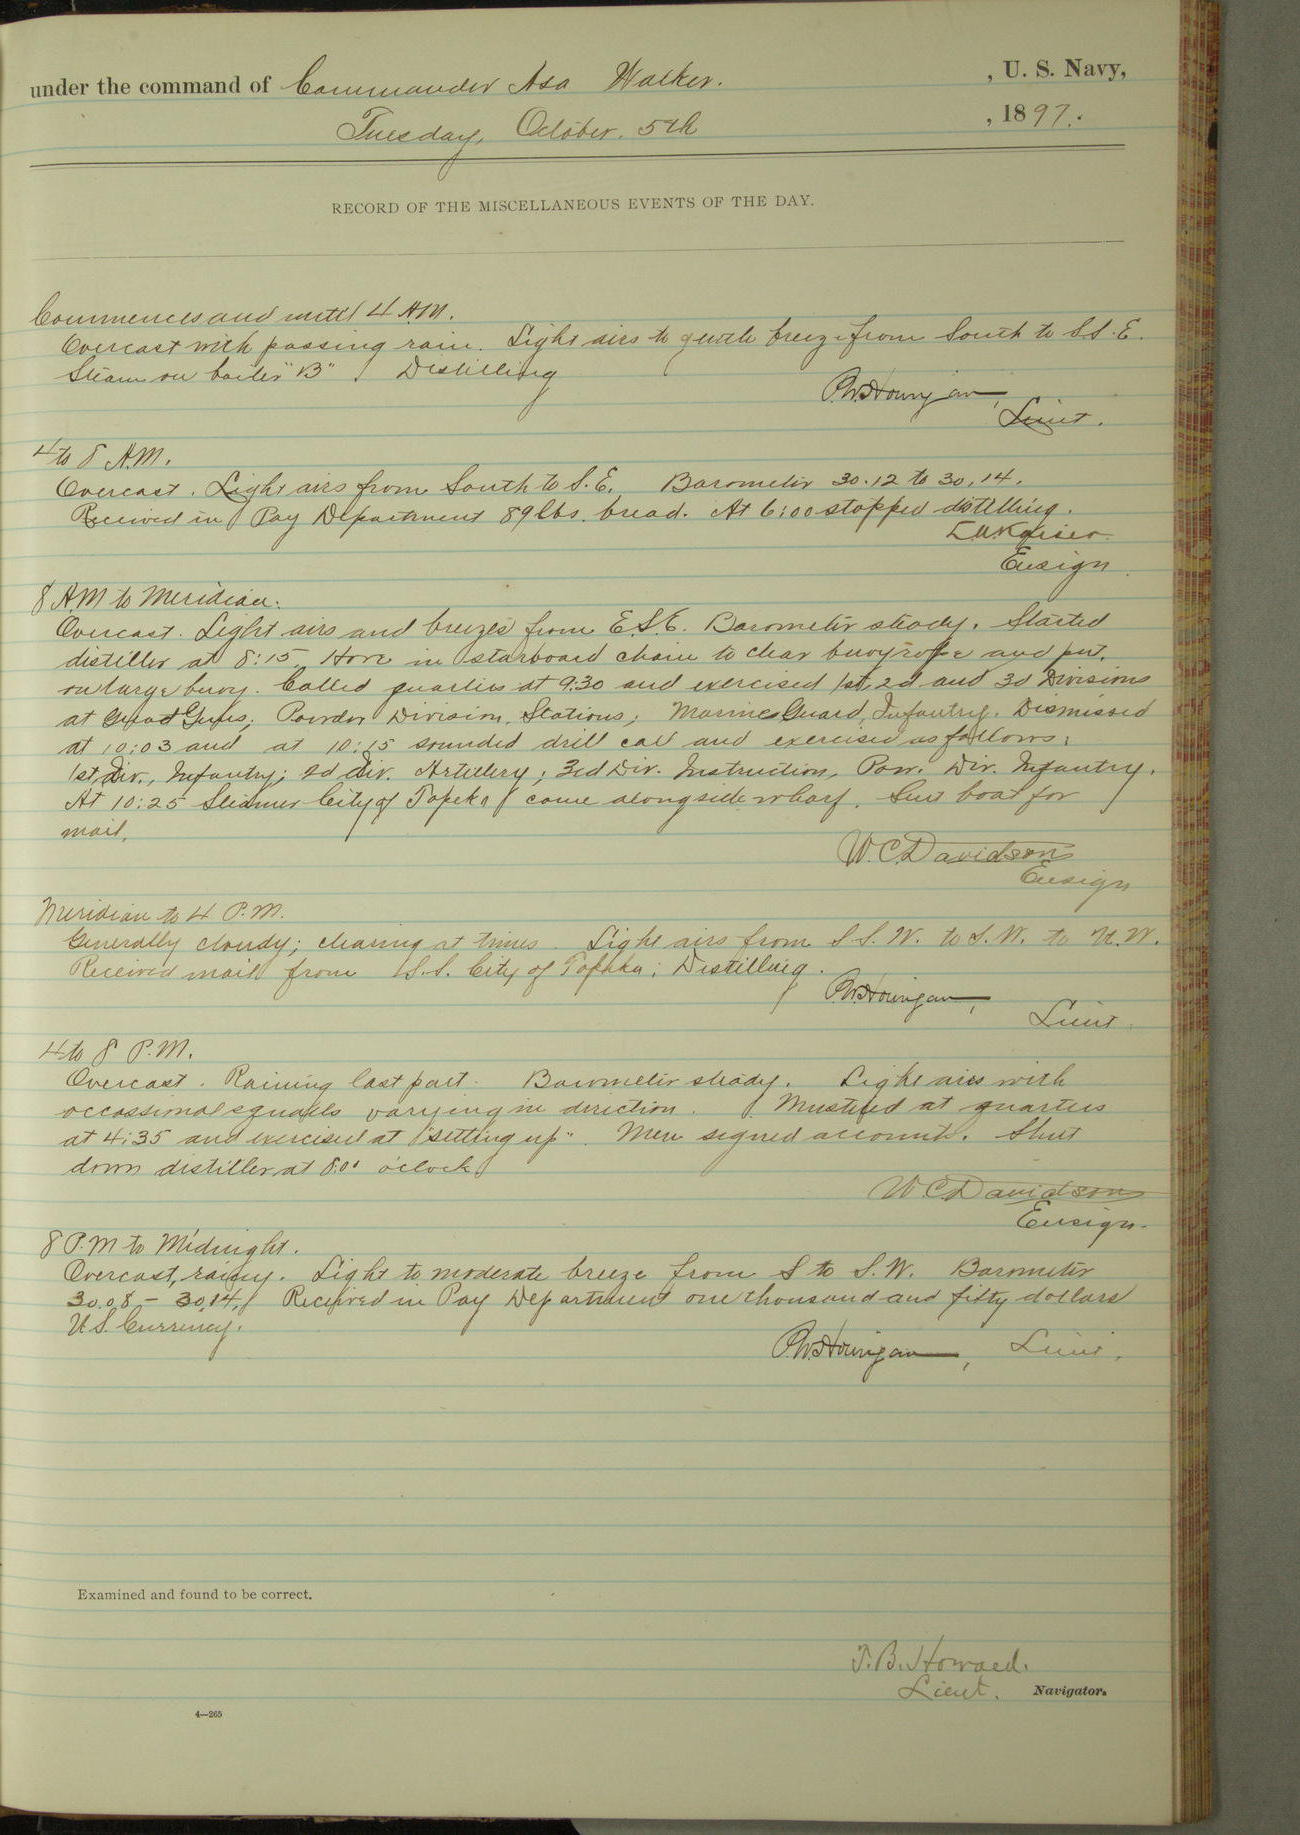 under the command of Commander Asa Walker. , U. S. Navy,
Tuesday, October. 5th , 1897.
RECORD OF THE MISCELLANEOUS EVENTS OF THE DAY.
Commences and until 4 A.M.
Overcast with passing rain. Light airs to gentle breeze from South to S.S.E.
Steam on boiler "B". Distilling
P.W. Hourigan, Lieut.
4 to 8 A.M.
Overcast. Light airs from South to S.E. Barometer 30.12 to 30.14.
Received in Pay Department 89 lbs. bread. At 6:00 stopped distilling.
Ensign.
8 A.M to Meridian.
Overcast. Light airs and breezes from E.S.E. Barometer steady. Started
distiller at 8:15. Hove in starboard chain to clear buoy rope and put
on large buoy. Called quarters at 9:30 and exercised 1st, 2d and 3d Divisions
at Great Guns; Powder Division, Stations; Marine Guard, Infantry. Dismissed
at 10:03 and at 10:15 sounded drill call and exercised as follows:
1st, Div., Infantry; 2d div. Artillery; 3rd Div. Instruction, Pow. Div. Infantry.
At 10:25 Steamer City of Topeka came alongside wharf. Sent boat for
mail.
W.C. Davidson
Ensign
Meridian to 4 P.M.
Generally cloudy; clearing at times. Light airs from S.S.W. to S.W. to N.W.
Received mail from S.S. City of Topeka; Distilling.
P.W. Hourigan, Lieut.
4 to 8 P.M.
Overcast. Raining last part. Barometer steady. Light airs with
occassional squalls varying in direction. Mustered at quarters
at 4:35 and exercised at "setting up". Men signed accounts. Shut
down distiller at 8:00 o'clock
W.C. Davidson
Ensign.
8 P.M to Midnight.
Overcast, rainy. Light to moderate breeze from S to S.W. Barometer
30.08 – 30.14. Received in Pay Department one thousand and fifty dollars
U.S. Currency.
P.W. Hourigan, Lieut.
Examined and found to be correct.
T.B. Howard.
Lieut. Navigator.
4—265